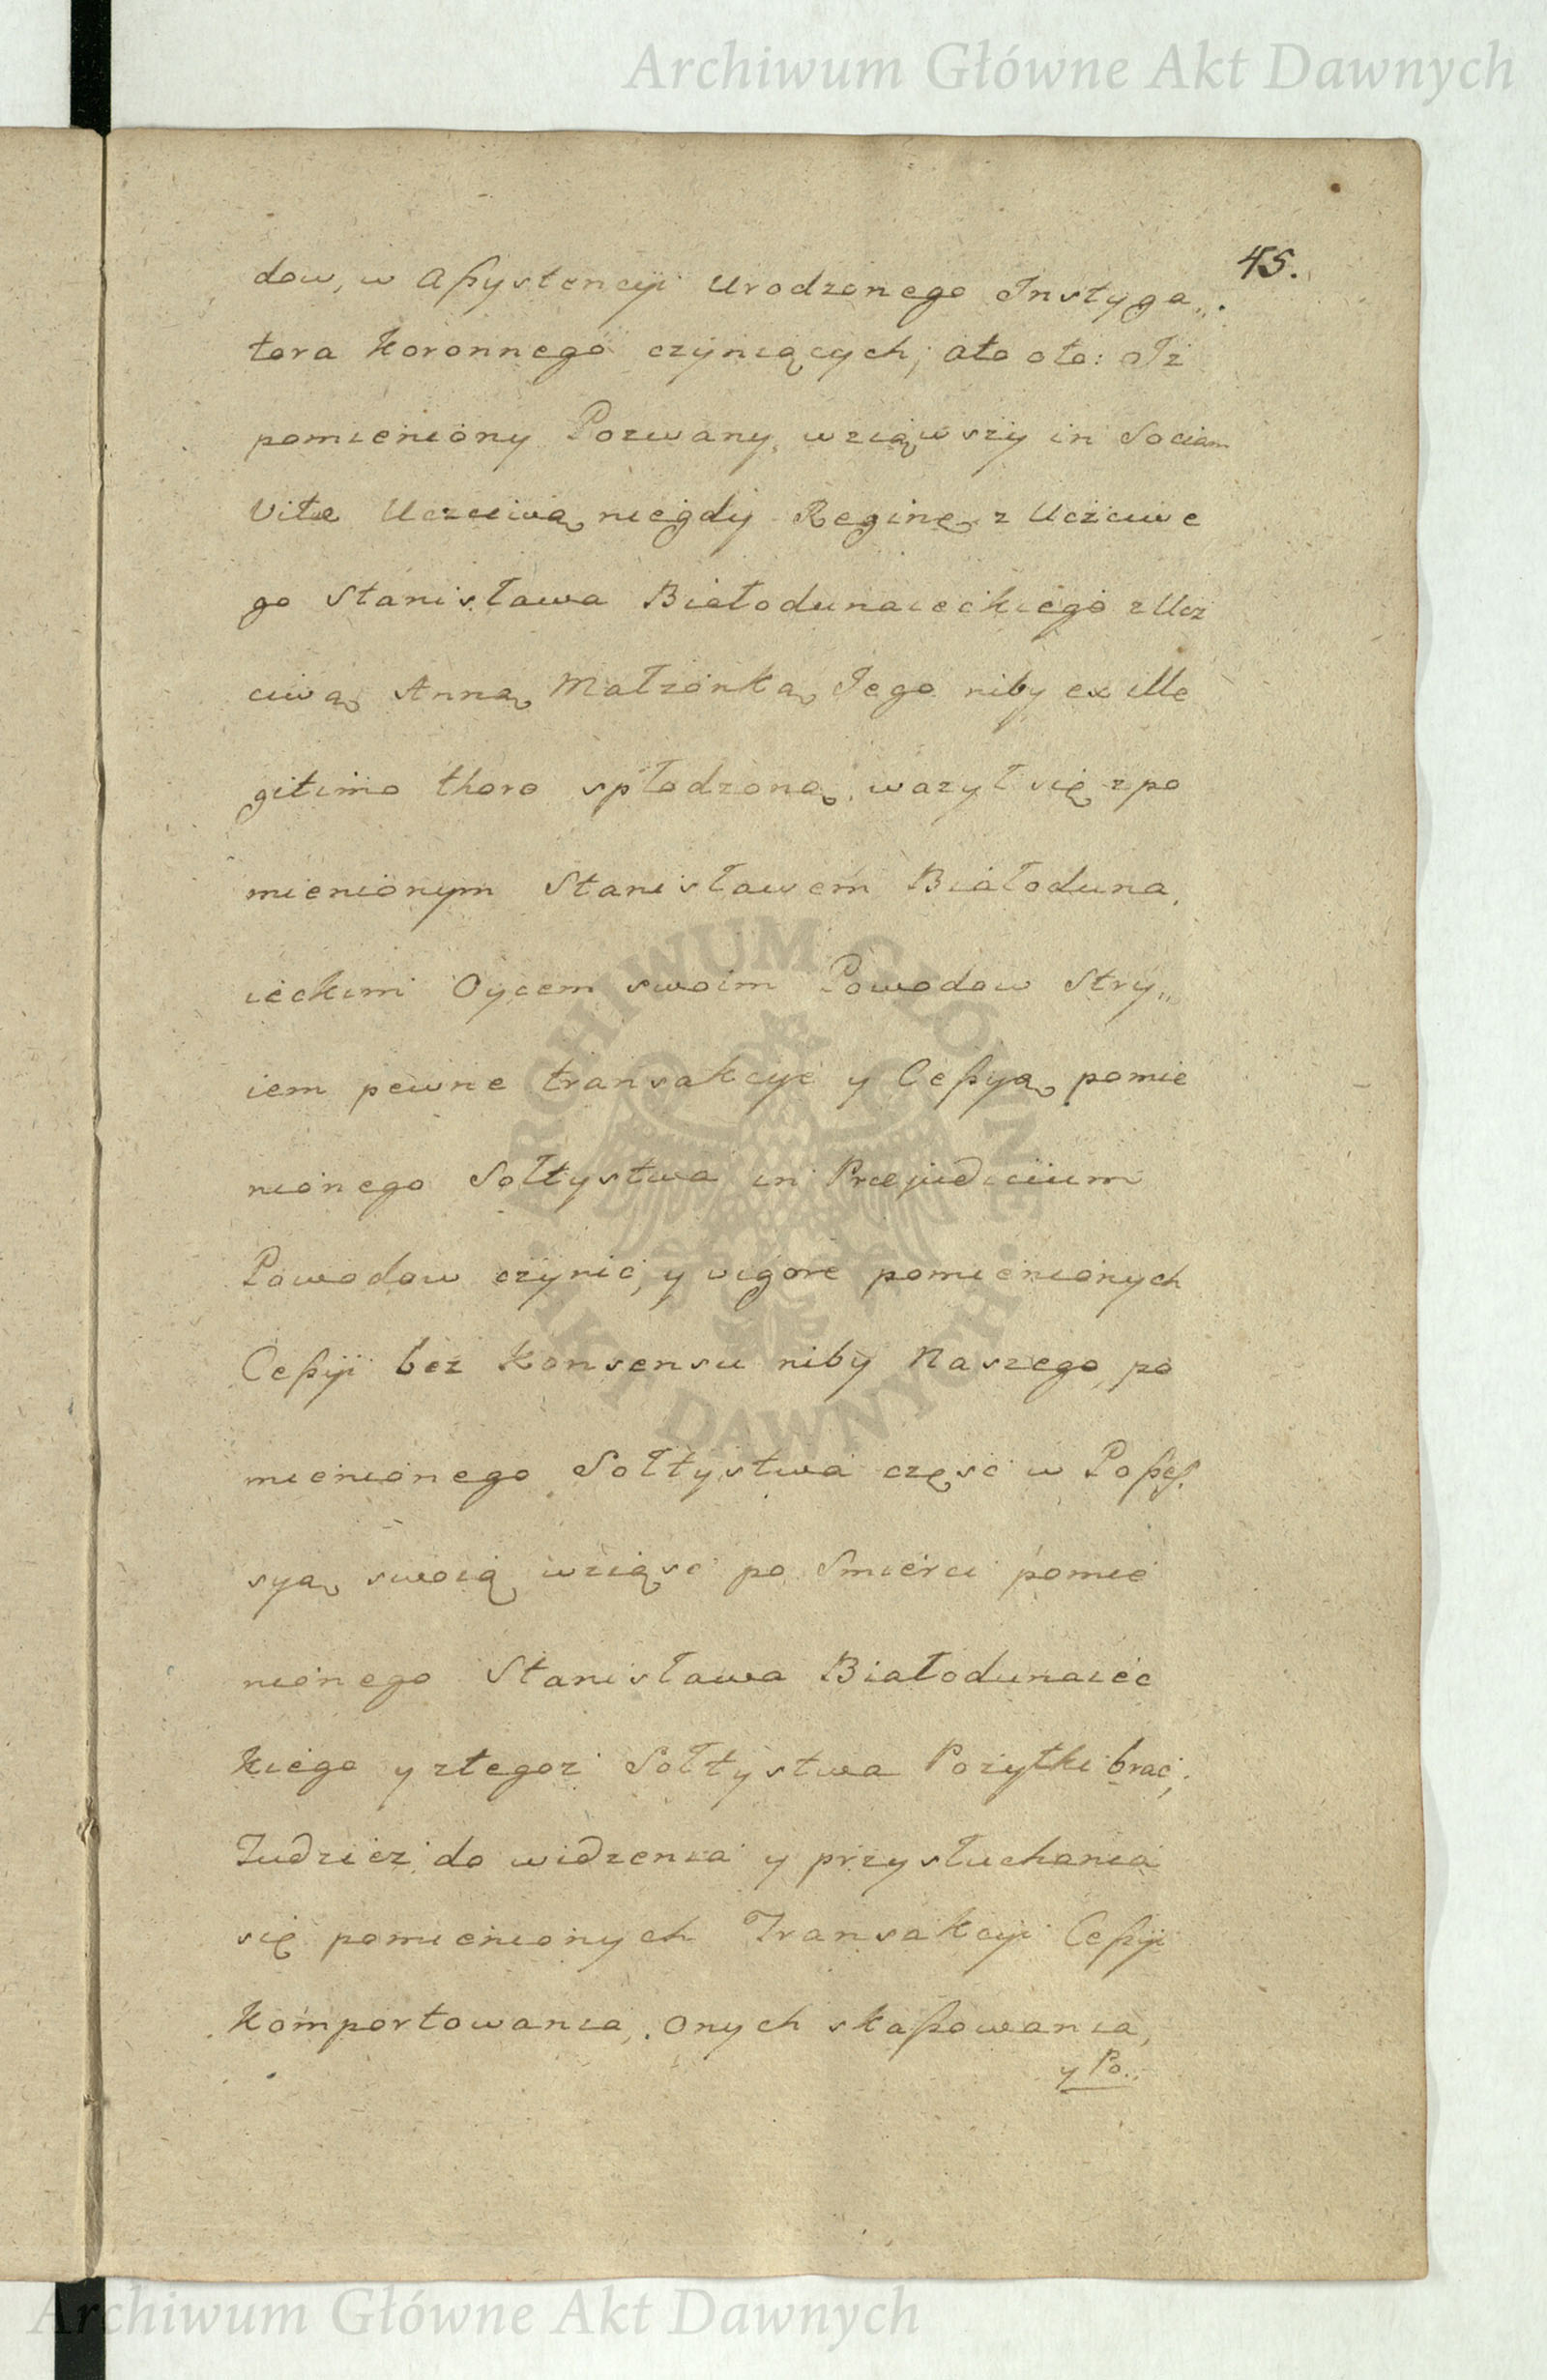 Archiwum Główne Akt Dawnych
45.
dow, w Aßystencyi Urodzonego Instyga„
tora Koronnego czyniących; ato oto: Iż
pomieniony Pozwany, wziąwszy in Sociam
Vitæ Uczciwą niegdy Reginę z Uczciwe
go Stanisława Białodunaieckiego z Ucz
ciwą Anną Małżonką Jego niby ex Ille
gitimo thoro spłodzoną, ważył się z po
mienionym Stanisławem Białoduna,
ieckim Oycem swoim Powodow Stry„
iem pewne transakcye y Ceßyą pomie
nionego Sołtystwa in Præjudicium
Powodow czynić, y vigore pomienionych
Ceßyi bez Konsensu niby Naszego, po
mienionego Sołtystwa część w Poßeß,
syą swoią wziąść po Smierci pomie
nionego Stanisława Białodunaiec
kiego y ztegoż Sołtystwa Pożytki brać;
Tudzież do widzenia y przysłuchania
się pomienionych Transakcyi Ceßyi
Komportowania, onych skaßowania,
y Po„
ARCHIWUM GŁÓWNE
AKT DAWNYCH
Archiwum Główne Akt Dawnych